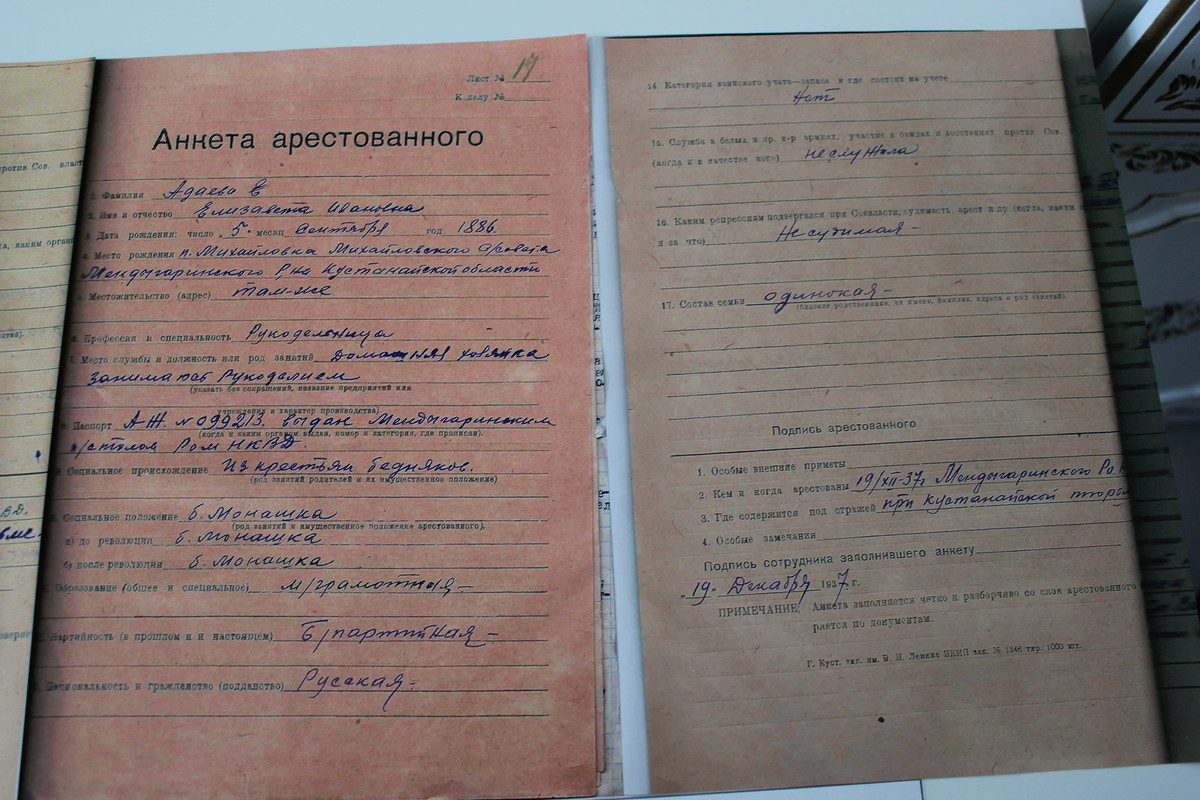 ротив Сов. власт
каким орган
ВД.
Лист № 19
К делу №
Анкета арестованного
1. Фамилия Адаева Е
2. Имя и отчество Елизавета Ивановна
3. Дата рождения: число 5. месяц Сентября год 1886.
4. Место рождения п. Михайловка Михайловского с/совета
Мендыгаринского Р,на Кустанайской области
5. Местожительство (адрес) там-же
6. Профессия и специальность Рукодельница
7. Место службы и должность или род занятий домашняя хозяйка
занимается Рукоделием
(указать без сокращений, название предприятий или
учреждения и характер производства)
8. Паспорт АЖ. № 099213. выдан Мендыгаринским
п/столом Ром НКВД.
(когда и каким органом выдан, номер и категория, где прописан).
9. Социальное происхождение Из крестьян бедняков.
(род занятий родителей и их имущественное положение)
Социальное положение б. Монашка
(род занятий и имущественное положение арестованного).
а) до революции б. Монашка
б) после революции б. Монашка
Образование (общее и специальное) м/грамотная –
Партийность (в прошлом и в настоящем) Б/партийная –
Национальность и гражданство (подданство) Русская –
14. Категория воинского учета—запаса и где состоит на учете
Нет
15. Служба в белых и др. к-р армиях, участие в бандах и восстаниях против Сов.
(когда и в качестве кого) не служила
16. Каким репрессиям подвергался при Совласти; судимость, арест и др. (когда, каким
и за что) Несудимая –
17. Состав семьи одинокая –
(близкие родственники, их имена, фамилии, адреса и род занятий).
Подпись арестованного
1. Особые внешние приметы
2. Кем и когда арестованы 19/XII-37г Мендыгаринского Ро.
3. Где содержится под стражей при Кустанайской тюрьм
4. Особые замечания
Подпись сотрудника заполнившего анкету
„ 19. Декабря 1937 г.
ПРИМЕЧАНИЕ: Анкета заполняется четко и разборчиво со слов арестованного
ряется по документам.
Г. Куст. тип. им. В. И. Ленина НКМП зак. № 1346 тир. 1000 шт.